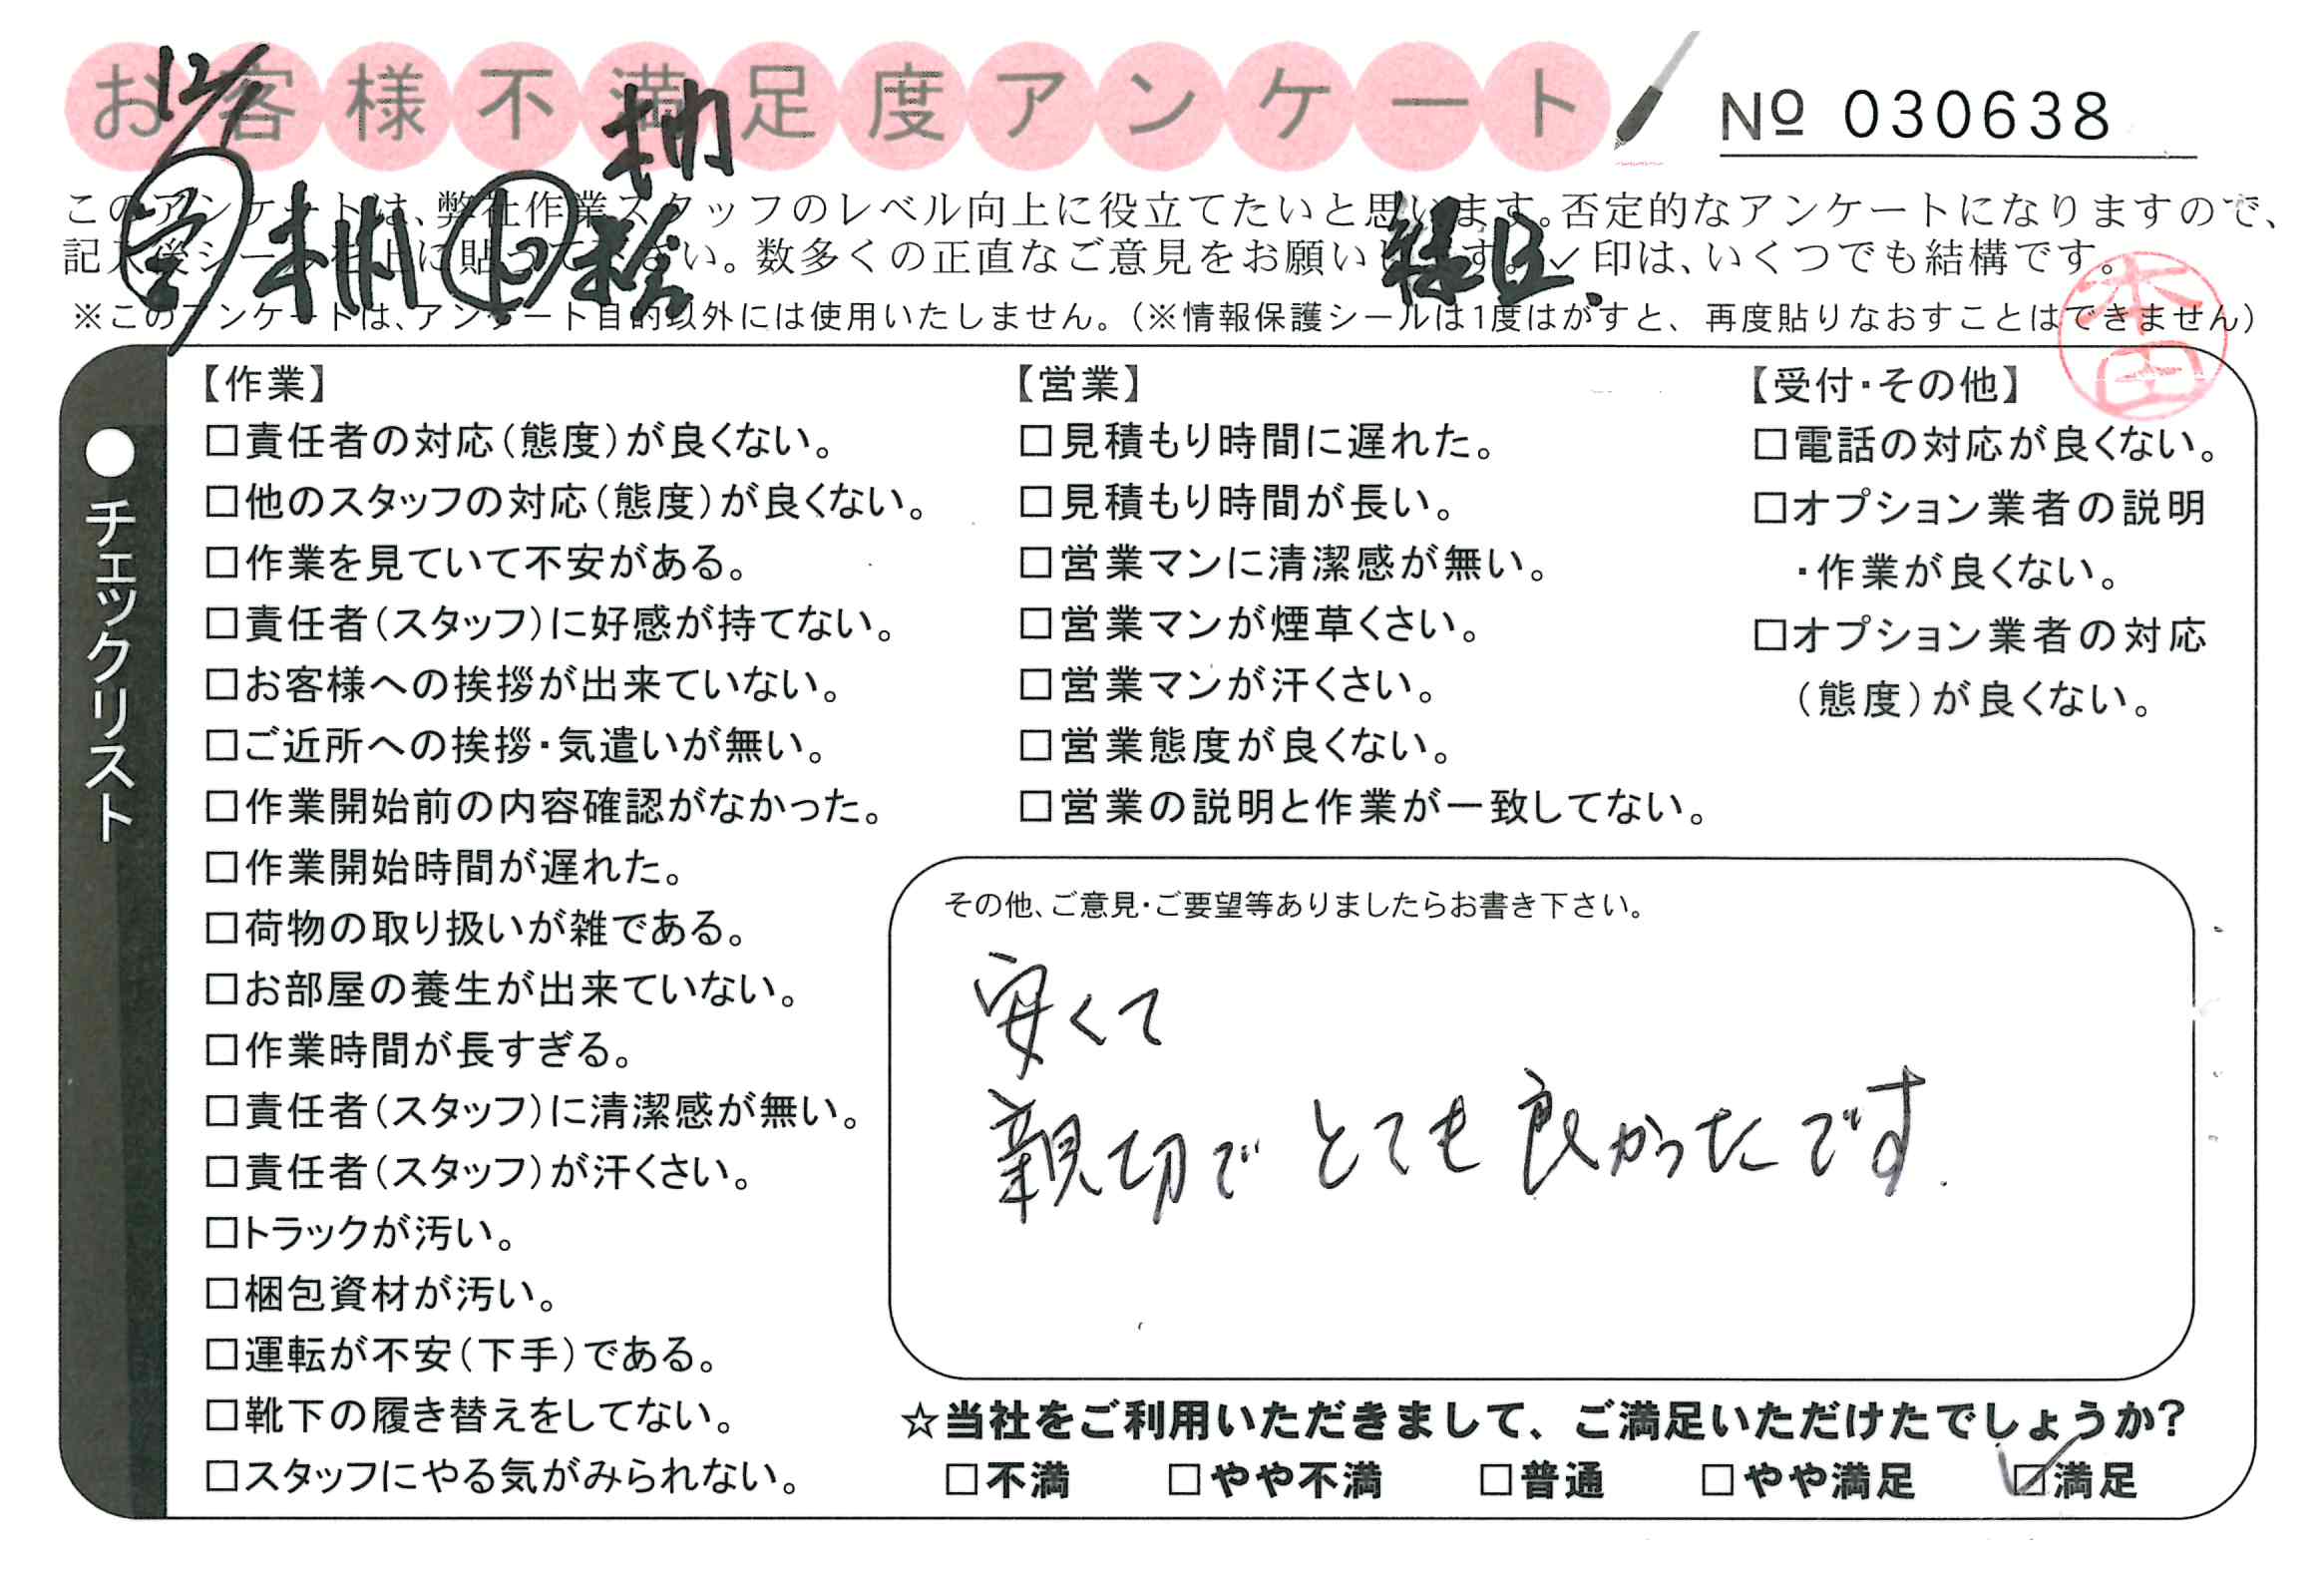 お客様不満足度アンケート
№ 030638
12/1
このアンケートは、弊社作業スタッフのレベル向上に役立てたいと思います。否定的なアンケートになりますので、
記入後シールを上に貼って下さい。数多くの正直なご意見をお願いします。✓印は、いくつでも結構です。
※このアンケートは、アンケート目的以外には使用いたしません。(※情報保護シールは1度はがすと、再度貼りなおすことはできません)
営
緑区.
本田
●チェックリスト
【作業】
□責任者の対応(態度)が良くない。
□他のスタッフの対応(態度)が良くない。
□作業を見ていて不安がある。
□責任者(スタッフ)に好感が持てない。
□お客様への挨拶が出来ていない。
□ご近所への挨拶・気遣いが無い。
□作業開始前の内容確認がなかった。
□作業開始時間が遅れた。
□荷物の取り扱いが雑である。
□お部屋の養生が出来ていない。
□作業時間が長すぎる。
□責任者(スタッフ)に清潔感が無い。
□責任者(スタッフ)が汗くさい。
□トラックが汚い。
□梱包資材が汚い。
□運転が不安(下手)である。
□靴下の履き替えをしてない。
□スタッフにやる気がみられない。
【営業】
□見積もり時間に遅れた。
□見積もり時間が長い。
□営業マンに清潔感が無い。
□営業マンが煙草くさい。
□営業マンが汗くさい。
□営業態度が良くない。
□営業の説明と作業が一致してない。
【受付・その他】
□電話の対応が良くない。
□オプション業者の説明
・作業が良くない。
□オプション業者の対応
(態度)が良くない。
その他、ご意見・ご要望等ありましたらお書き下さい。
安くて
親切で とても良かったです.
☆当社をご利用いただきまして、ご満足いただけたでしょうか?
□不満 □やや不満 □普通 □やや満足 ☑満足